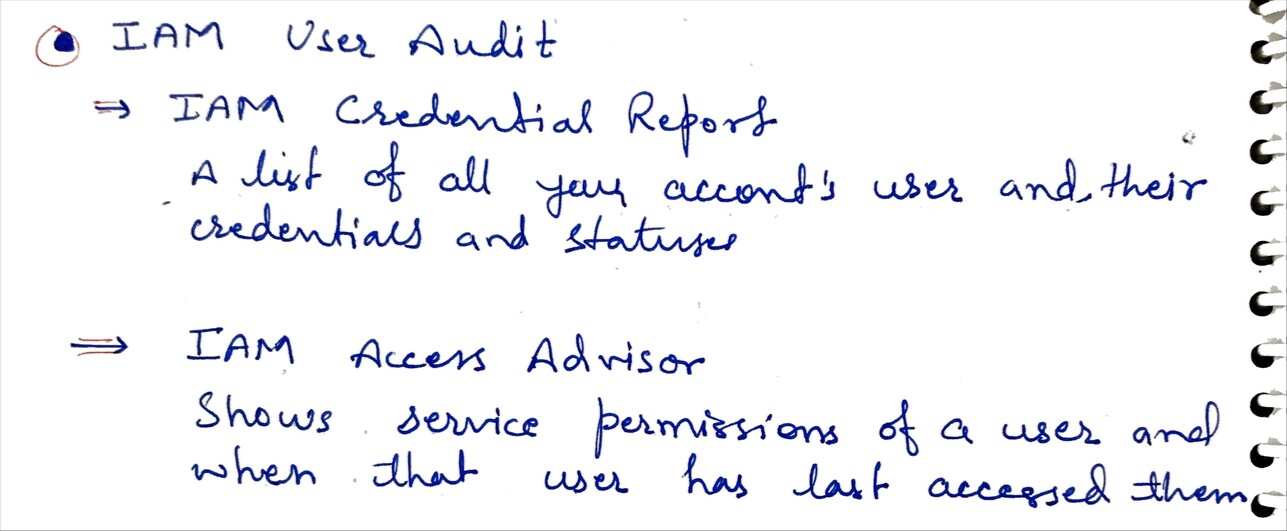 IAM User Audit
⇒ IAM Credential Report
A list of all your accont's user and their
credentials and statuses
⇒ IAM Access Advisor
Shows service permissions of a user and
when that user has last accessed them